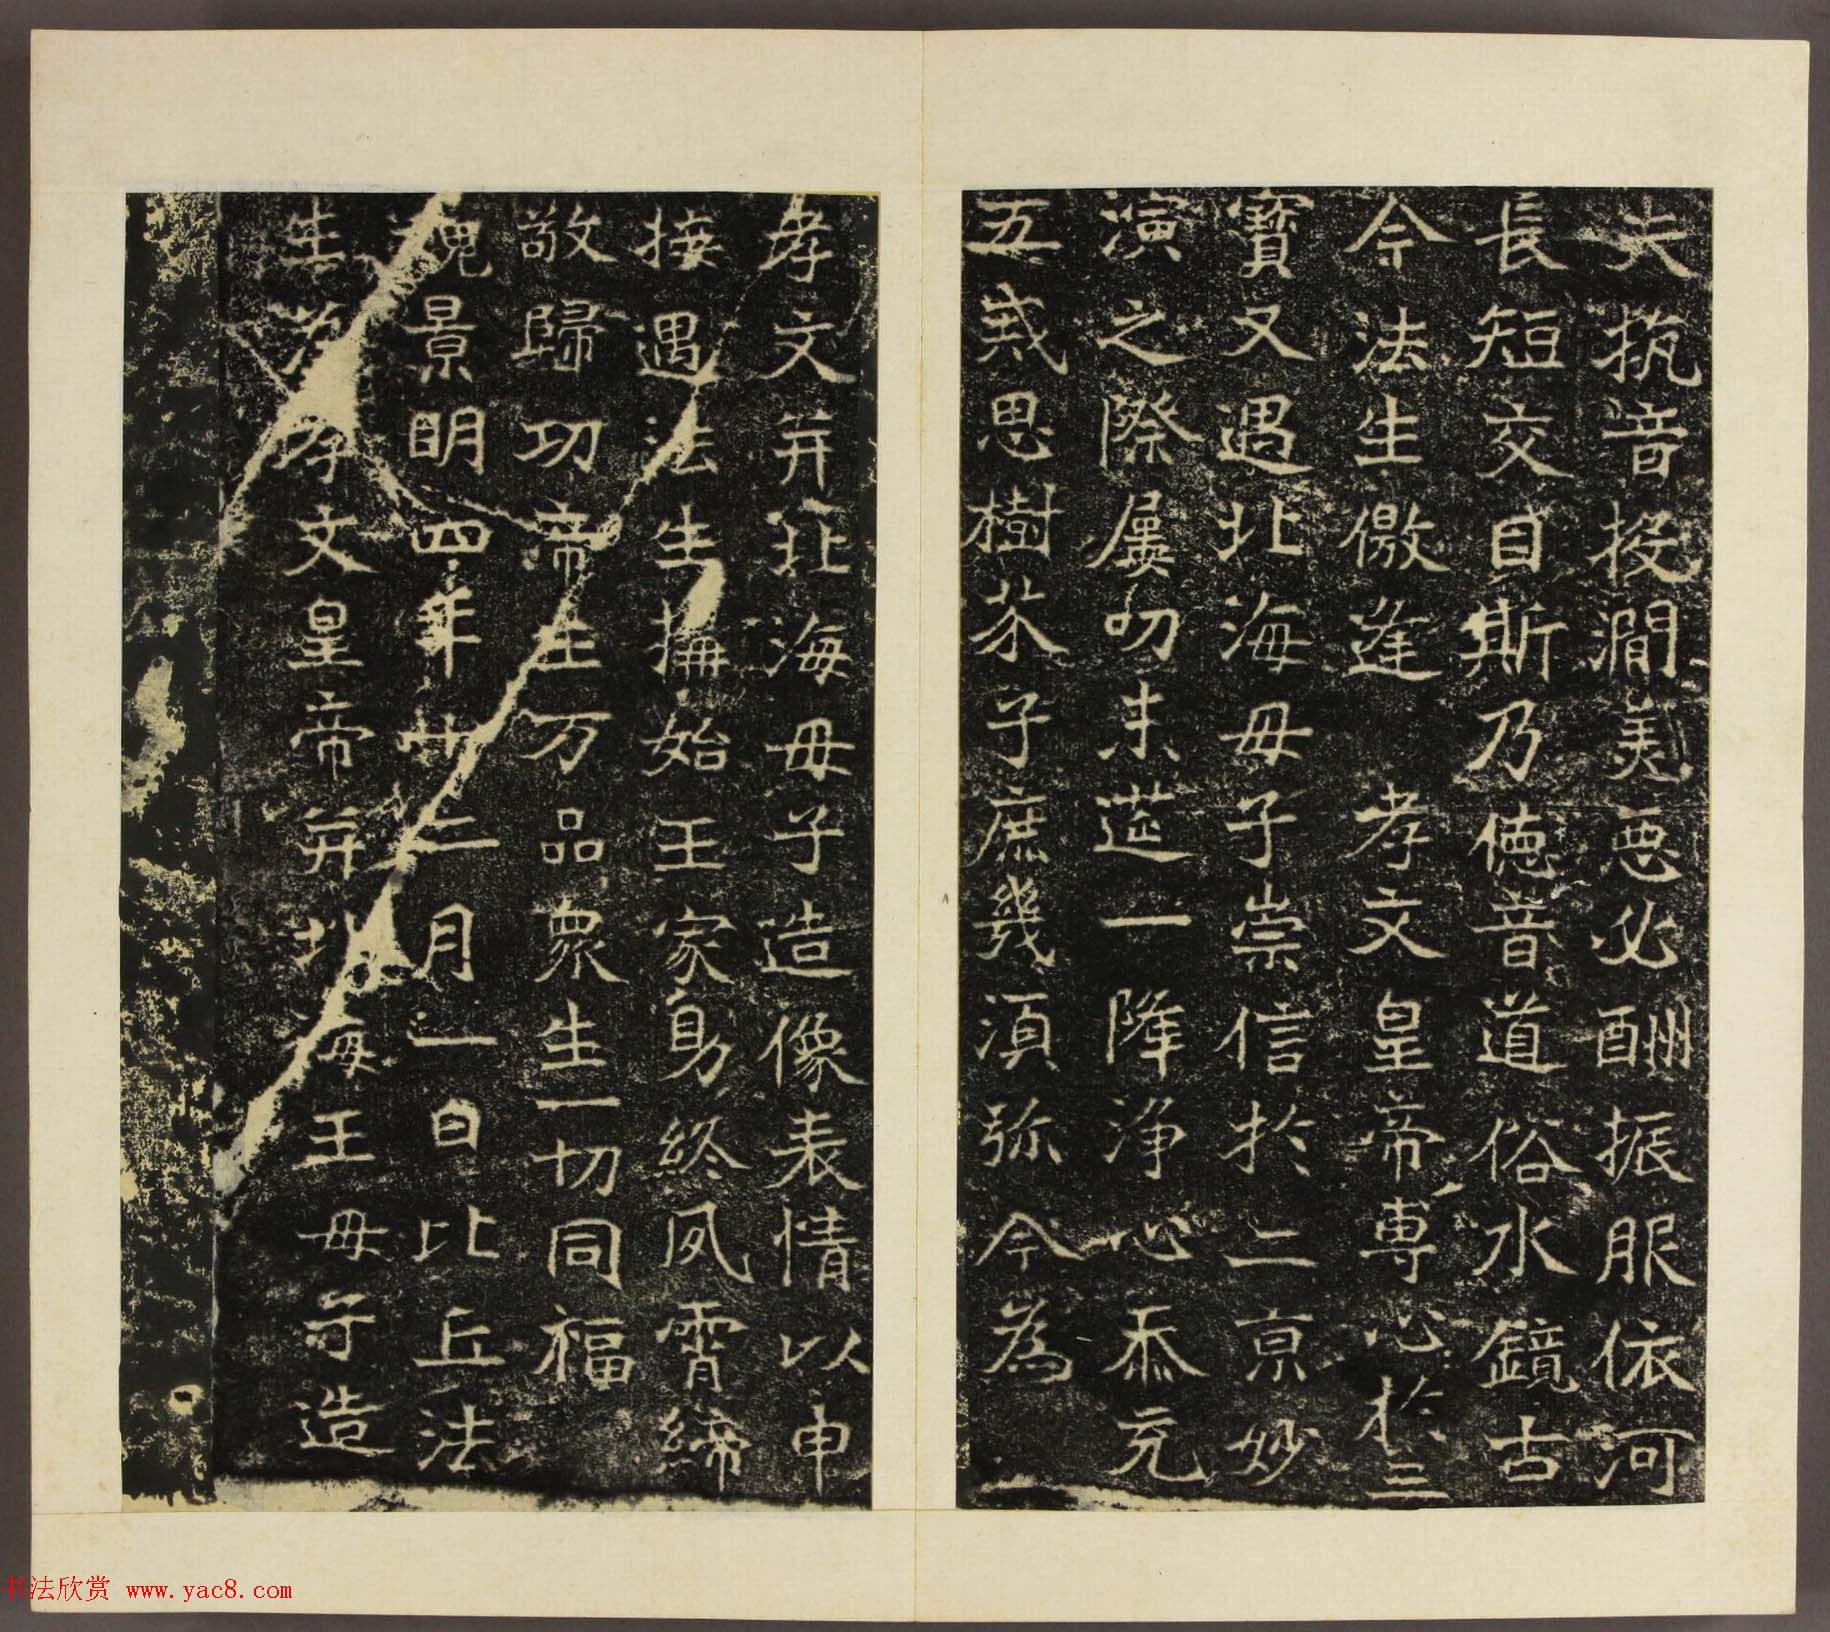 夫抗音投澗美惡必酬振服依河
長短交目斯乃德音道俗水鏡古
今法生儌逢　孝文皇帝專心於三
寶又遇北海母子崇信於二京妙
演之際屢叨末莚一降淨心忝充
五戒思樹芥子庶幾須弥今為
孝文并北海母子造像表情以申
接遇法生搆始王家身終夙霄締
敬歸功帝主万品衆生一切同福
魏景明四年廿二月一日比丘法
生為孝文皇帝并北海王母子造
书法欣赏 www.yac8.com